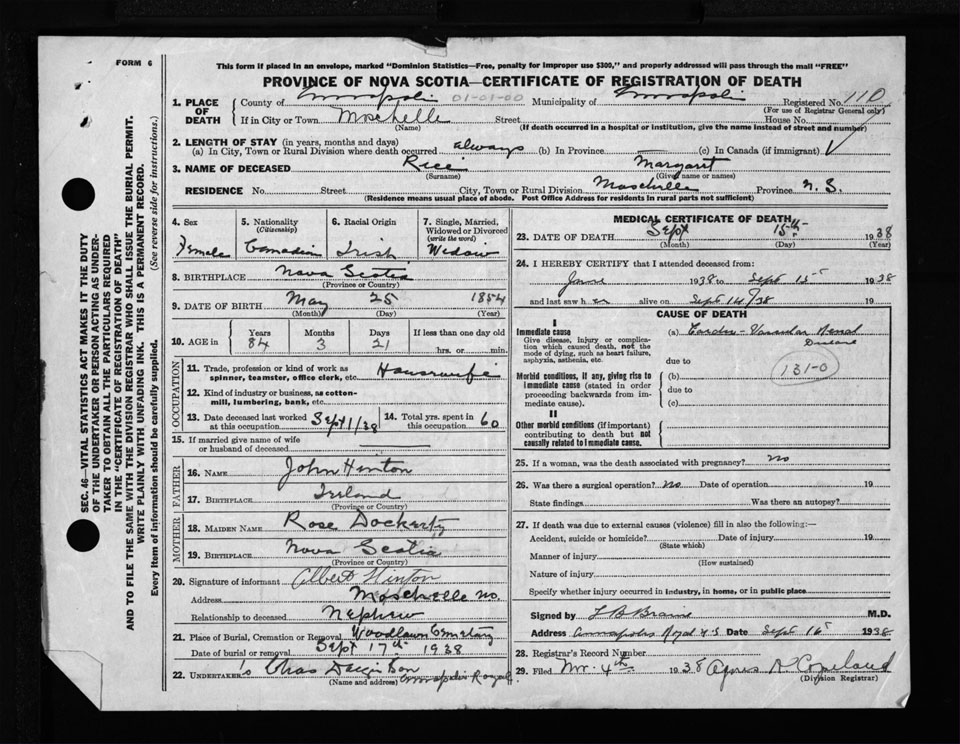 FORM 6
This form if placed in an envelope, marked "Dominion Statistics—Free, penalty for improper use $300," and properly addressed will pass through the mail "FREE"
PROVINCE OF NOVA SCOTIA—CERTIFICATE OF REGISTRATION OF DEATH
1. PLACE OF DEATH
County of Annapolis 01-01-00 Municipality of Annapolis Registered No. 110
(For use of Registrar General only)
If in City or Town Moschelle Street House No.
(Name) (If death occurred in a hospital or institution, give the name instead of street and number)
2. LENGTH OF STAY (in years, months and days)
(a) In City, Town or Rural Division where death occurred always (b) In Province — (c) In Canada (if immigrant)
3. NAME OF DECEASED Rice Margaret
(Surname) (Given name or names)
RESIDENCE No. Street City, Town or Rural Division Moschelle Province N. S.
(Residence means usual place of abode. Post Office Address for residents in rural parts not sufficient)
4. Sex
Female
5. Nationality
(Citizenship)
Canadian
6. Racial Origin
Irish
7. Single, Married, Widowed or Divorced
(write the word)
Widow
8. BIRTHPLACE Nova Scotia
(Province or Country)
9. DATE OF BIRTH May 25 1854
(Month) (Day) (Year)
10. AGE in
Years Months Days If less than one day old
84 3 21 hrs. or min.
OCCUPATION
11. Trade, profession or kind of work as spinner, teamster, office clerk, etc. Housewife
12. Kind of industry or business, as cotton-mill, lumbering, bank, etc.
13. Date deceased last worked at this occupation Sept 1/38
14. Total yrs. spent in this occupation 60
15. If married give name of wife or husband of deceased
FATHER
16. NAME John Hinton
17. BIRTHPLACE Ireland
(Province or Country)
MOTHER
18. MAIDEN NAME Rose Dockerty
19. BIRTHPLACE Nova Scotia
(Province or Country)
20. Signature of informant Albert Hinton
Address Moschelle
Relationship to deceased Nephew
21. Place of Burial, Cremation or Removal Woodlawn Cemetary
Date of burial or removal Sept 17th 1938
22. UNDERTAKER Chas
(Name and address) Annapolis Royal
MEDICAL CERTIFICATE OF DEATH
23. DATE OF DEATH Sept 15th 1938
(Month) (Day) (Year)
24. I HEREBY CERTIFY that I attended deceased from:
June 1938 to Sept 15 1938
and last saw her alive on Sept 14/38 19
CAUSE OF DEATH
I
Immediate cause
Give disease, injury or complication which caused death, not the mode of dying, such as heart failure, asphyxia, asthenia, etc.
(a) Cardio-Vascular Renal Disease
due to
131-0
Morbid conditions, if any, giving rise to immediate cause (stated in order proceeding backwards from immediate cause).
(b)
due to
(c)
II
Other morbid conditions (if important) contributing to death but not causally related to immediate cause.
25. If a woman, was the death associated with pregnancy? No
26. Was there a surgical operation? No Date of operation 19
State findings Was there an autopsy?
27. If death was due to external causes (violence) fill in also the following:—
Accident, suicide or homicide? Date of injury 19
(State which)
Manner of injury
(How sustained)
Nature of injury
Specify whether injury occurred in industry, in home, or in public place
Signed by L B Braine M.D.
Address Annapolis Royal N S Date Sept 16 1938
28. Registrar's Record Number
29. Filed 4th 1938 Agnes Copeland
(Division Registrar)
SEC. 46—VITAL STATISTICS ACT MAKES IT THE DUTY
OF THE UNDERTAKER OR PERSON ACTING AS UNDER-
TAKER TO OBTAIN ALL THE PARTICULARS REQUIRED
IN THE "CERTIFICATE OF REGISTRATION OF DEATH"
AND TO FILE THE SAME WITH THE DIVISION REGISTRAR WHO SHALL ISSUE THE BURIAL PERMIT.
WRITE PLAINLY WITH UNFADING INK. THIS IS A PERMANENT RECORD.
Every item of information should be carefully supplied. (See reverse side for instructions.)